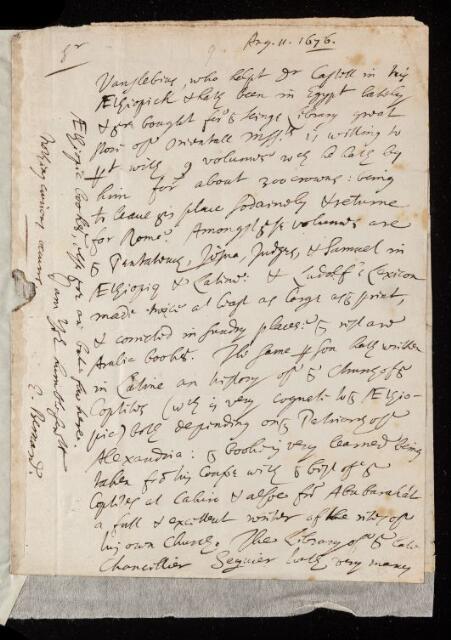 Sr
Aug. 11. 1676.
Vanslebius, who helpt Dr Castell in his
Æthiopick & hath been in Egypt lately
& bought for Kings Library great
store of Orientall Mssts is willing to
pt with 9 volumes wch he hath by
him for about 300 crowns: being
to leave his place sodainely & return
for Rome. Amongst volumes are
Pentateuch, Josua, Judges, & Samuel in
Æthiopiq & Latine: & Ludolf's Lexicon
made twice at least as large as print,
& corrected in sundry places: rest are
Arabic books. The same pson hath written
in Latine an history of Church of
Coptites (wch is very cognate to Æthio-
pic) both depending on Patriarch of
Alexandria: booke is very learned being
taken fro his Converse with bishop of
Coptites at Cairo & also fro Abubaracat
a full & excellent writer of the rites of
his own Church. The Library of late
Chancellier Seguier hath very many
Ethiopic books, are but few here
nothing
from Yor humble servt
E. Bernard